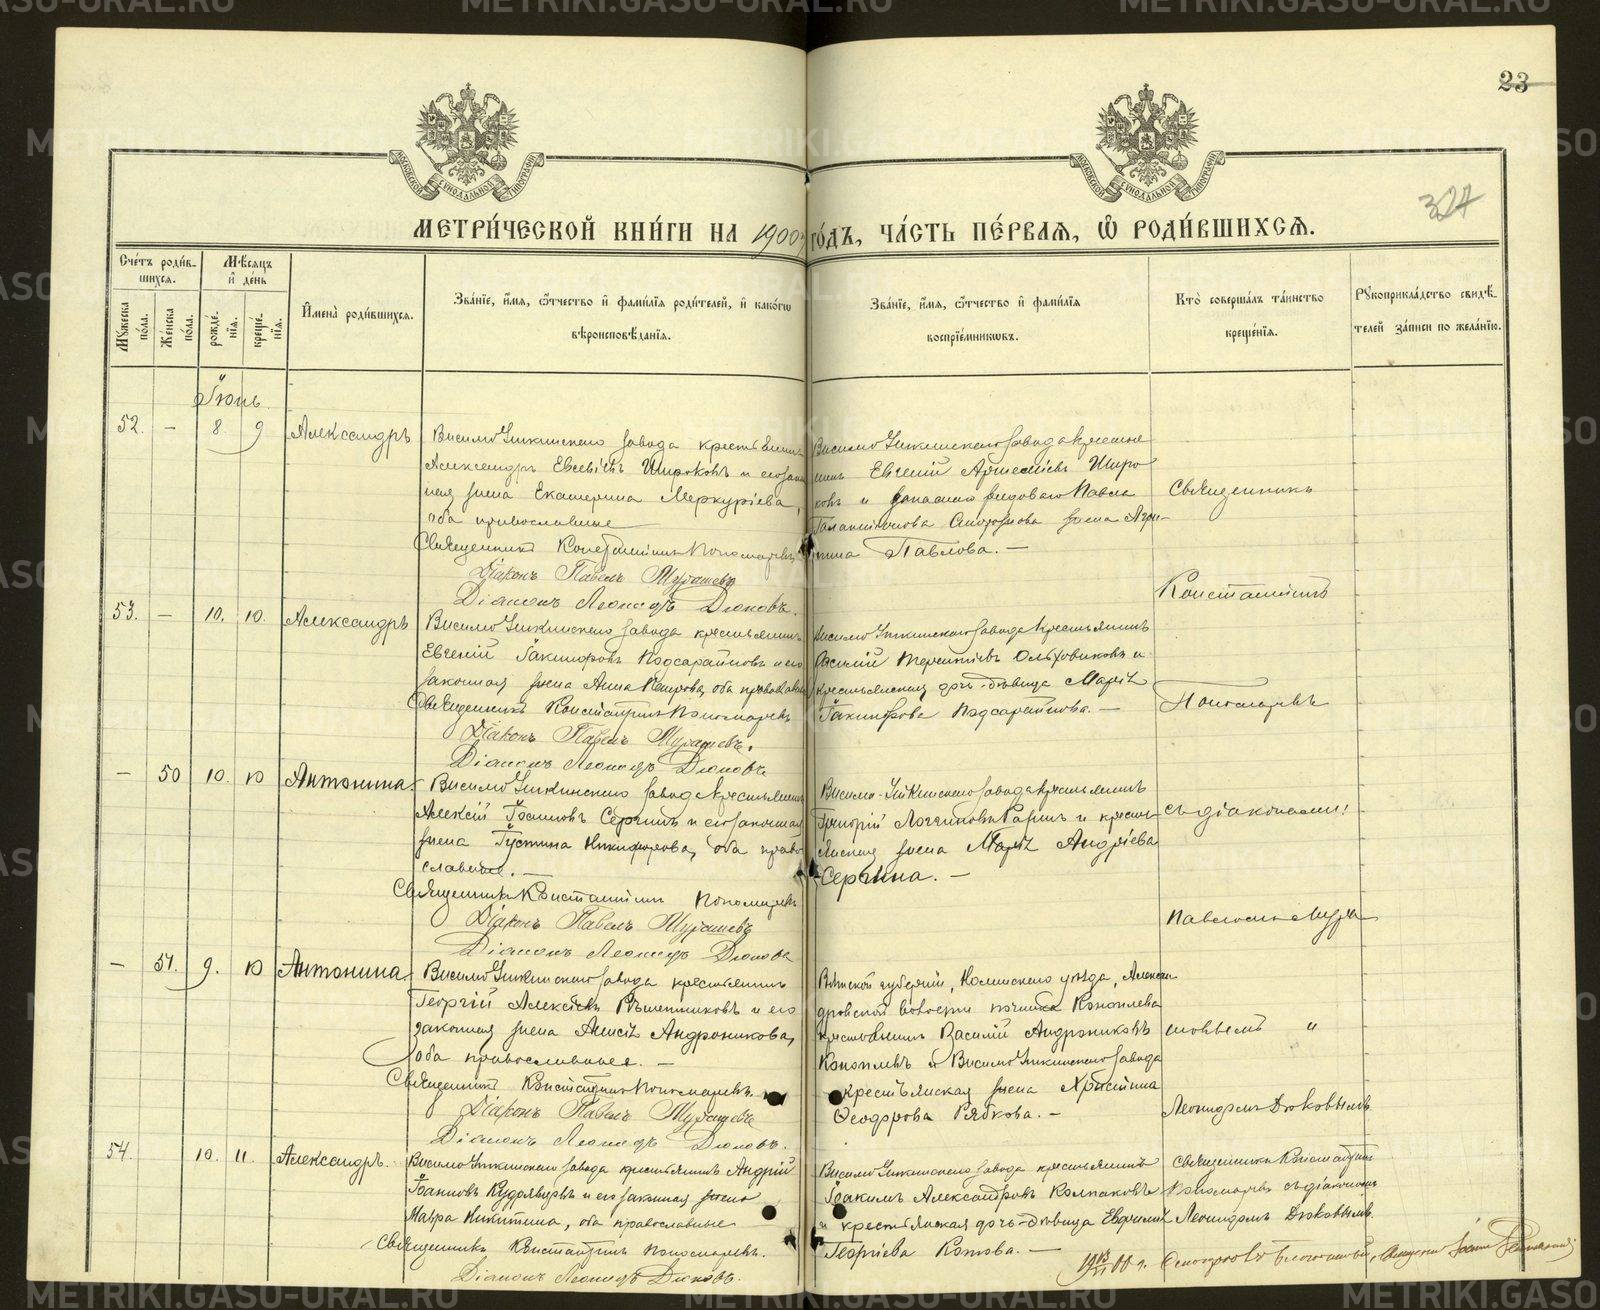 23
324
МОСКОВСКОЙ СѴНОДАЛЬНОЙ ТИПОГРАФІИ
МОСКОВСКОЙ СѴНОДАЛЬНОЙ ТИПОГРАФІИ
МЕТРИ́ЧЕСКОЙ КНИ́ГИ НА 1900 ГО́ДЪ, ЧА́СТЬ ПЕ́РВАЯ, Ѡ РОДИ́ВШИХСЯ.
Сче́тъ роди́вшихся.
Мѣ́сяцъ и де́нь
Мꙋ́жеска по́ла.
Же́нска по́ла.
рожде́нїя.
креще́нїя.
Имена̀ роди́вшихся.
Зва́нїе, и́мя, ѻ҆́тчество и҆ фами́лїя роди́телей, и҆ како́гѡ вѣроисповѣ́данїя.
Зва́нїе, и́мя, ѻ҆́тчество и҆ фами́лїя воспрїе́мникѡвъ.
Кто̀ соверша́лъ та́инство креще́нїя.
Рꙋкоприкла́дство свидѣ́телей за́писи по жела́нїю.
Іюнь
52. — 8. 9 Александръ
Висимо Уткинскаго завода крестьянинъ
Александръ Евсевіевъ Широковъ и его закон
ная жена Екатерина Меркуріева,
оба православные
Священникъ Константинъ Пономаревъ
Діаконъ Павелъ Мурашевъ
Діаконъ Леонидъ Дюковъ.
Висимо Уткинскаго завода крестья
нинъ Евгеній Артеміевъ Широ
ковъ и запаснаго рядоваго Павла
жена Агри
пина Павлова. —
Священникъ
Константинъ
Пономаревъ
53. — 10. 10. Александръ
Висимо Уткинскаго завода крестьянинъ
Евгеній Іакинфовъ Подсарайновъ и его
законная жена Анна Петрова, оба православные
Священникъ Константинъ Пономаревъ
Діаконъ Павелъ Мурашевъ.
Діаконъ Леонидъ Дюковъ
Висимо Уткинскаго завода крестьянинъ
Василій Терентіевъ Ольховиковъ и
крестьянская дочь-дѣвица Марія
Іакинфова Подсарайнова. —
— 50 10. 10 Антонина
Висимо Уткинскаго завода крестьянинъ
Алексій Іоанновъ Сергинъ и его законная
жена Іустина Никифорова, оба право
славные. —
Священникъ Константинъ Пономаревъ
Діаконъ Павелъ Мурашевъ
Діаконъ Леонидъ Дюковъ
Висимо-Уткинскаго завода крестьянинъ
Григорій Логгиновъ и кресть
янская жена Марія Андріева
Сергина. —
съ діаконами:
Павломъ Мура
шовымъ "
Леонидомъ Дюковымъ.
— 51. 9. 10 Антонина
Висимо Уткинскаго завода крестьянинъ
Георгій Алексіевъ Рѣшетниковъ и его
законная жена Анисія Андроникова,
оба православные. —
Священникъ Константинъ Пономаревъ.
Діаконъ Павелъ Мурашевъ
Діаконъ Леонидъ Дюковъ.
Вятской губерніи, уѣзда, Алексан
дровской волости починка Коноплева
крестьянинъ Василій Андрониковъ
Коноплевъ и Висимо Уткинскаго завода
крестьянская жена Христина
Ѳеодорова Рябкова. —
54. 10. 11. Александръ.
Висимо Уткинскаго завода крестьянинъ Андрій
Іоанновъ Кудрявцевъ и его законная жена
Мавра Никитина, оба православные
Священникъ Константинъ Пономаревъ.
Діаконъ Леонидъ Дюковъ.
Висимо Уткинскаго завода крестьянинъ
Іоакимъ Александровъ Колпаковъ
и крестьянская дочь-дѣвица Евфимія
Георгіева Котова. —
Священникъ Константинъ
Пономаревъ съ діакономъ
Леонидомъ Дюковымъ.
METRIKI.GASO-URAL.RU